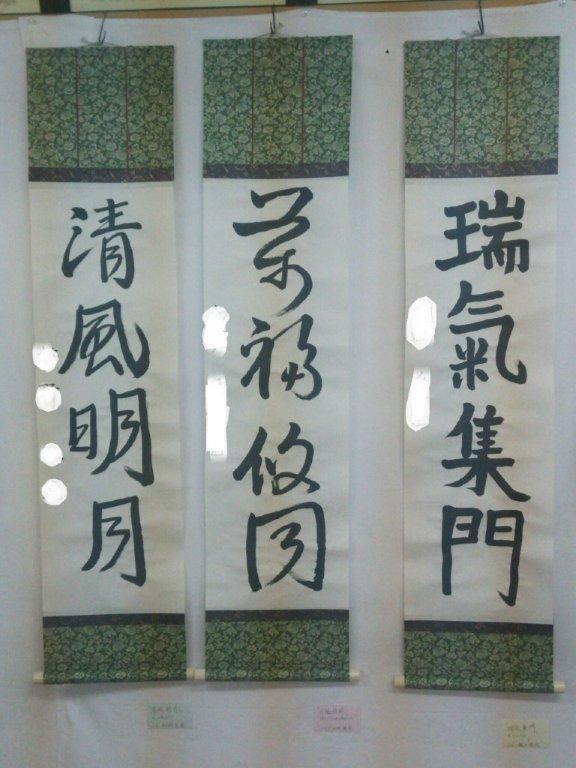 瑞氣集門
萬福攸同
清風明月